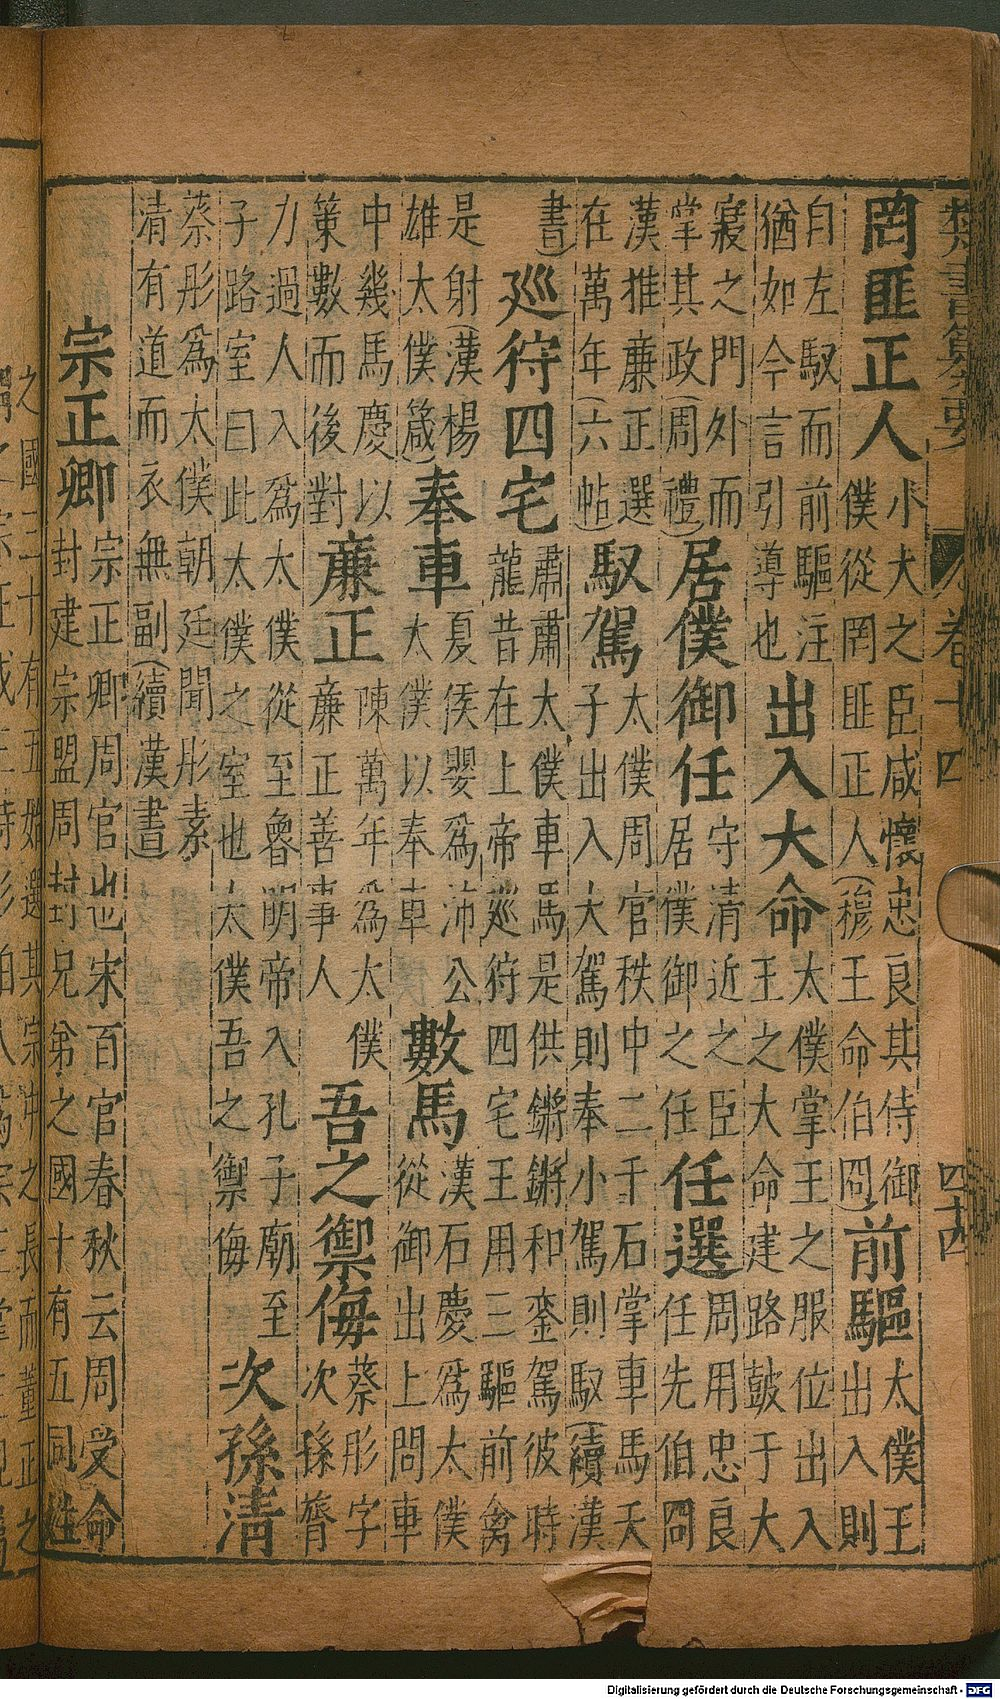 類書纂要 卷十四 四十四
罔匪正人
小大之臣咸懷忠良其侍御
僕從罔匪正人(穆王命伯冏)
前驅
太僕王
出入則
自左馭而前驅注
猶如今言引導也
出入大命
太僕掌王之服位出入
王之大命建路鼓于大
寢之門外而
掌其政(周禮)
居僕御任
守清近之臣
居僕御之任
任選
周用忠良
任先伯冏
漢推廉正選
在萬年(六帖)
馭駕
太僕周官秩中二千石掌車馬天
子出入大駕則奉小駕則馭(續漢
書)
巡狩四宅
肅肅太僕車馬是供鏘鏘和鑾駕彼時
龍昔在上帝巡狩四宅王用三驅前禽
是射(漢楊
雄太僕箴)
奉車
夏侯嬰為沛公
太僕以奉車
數馬
漢石慶為太僕
從御出上問車
中幾馬慶以
策數而後對
廉正
陳萬年為太僕
廉正善事人
吾之禦侮
蔡肜字
次孫膂
力過人入為太僕從至魯明帝入孔子廟至
子路室曰此太僕之室也太僕吾之禦侮
次孫清
蔡肜為太僕朝廷聞肜素
清有道而衣無副(續漢書)
宗正卿
宗正卿周官也宋百官春秋云周受命
封建宗盟周封兄弟之國十有五同姓
之國二十有五始選其宗中之長而董正之
Digitalisierung gefördert durch die Deutsche Forschungsgemeinschaft - DFG